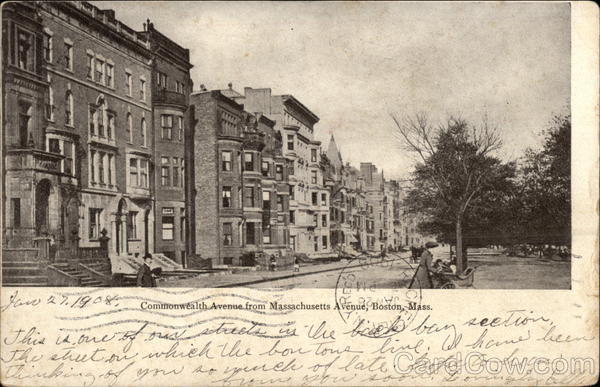 Commonwealth Avenue from Massachusetts Avenue, Boston, Mass.
Jan 27. 1908.
This is one of our streets in the back bay section,
The street on which the bon tons live. I have been
thinking of you so much of late
from you soon
CardCow.com